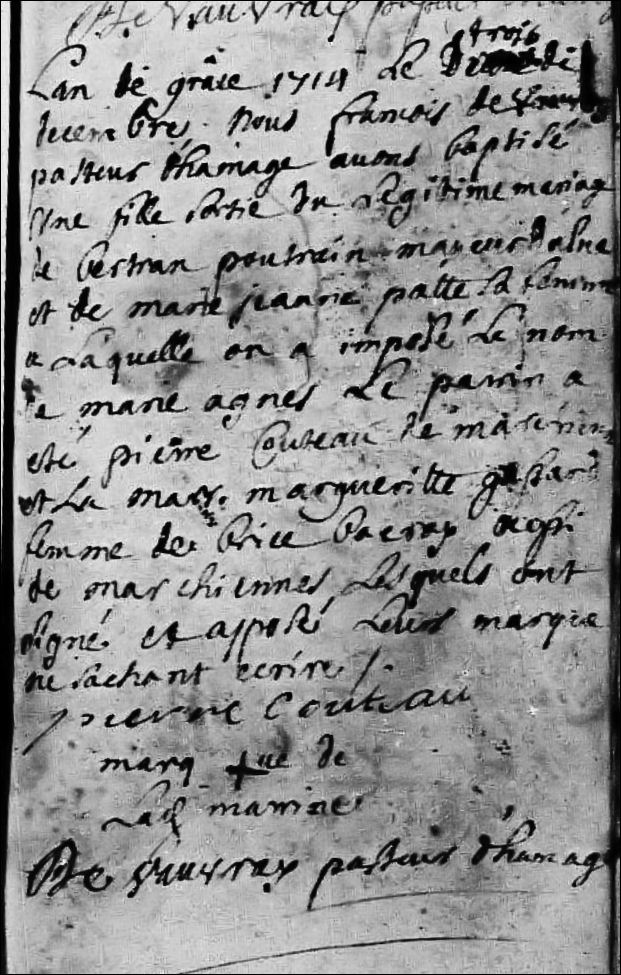 De Vauvraÿ pasteur
trois
Lan de grâce 1714 Le de
decembre Nous francois de Vauvraÿ
pasteur d'hamage avons baptisé
Une fille sortie du Legitime mariag
de bertran poutrain
et de marie jeanne patte sa femme
a Laquelle on a imposé Le nom
de marie agnes Le parrin a
eté pierre Couteau de marchien
et La marr. margueritte
femme de brice aussi
de marchiennes Lesquels ont
signé et apposé Leurs marque
ne sachant ecrire /.
pierre Couteau
marq + ue de
Lad marrine
De Vauvraÿ pasteur d'hamage